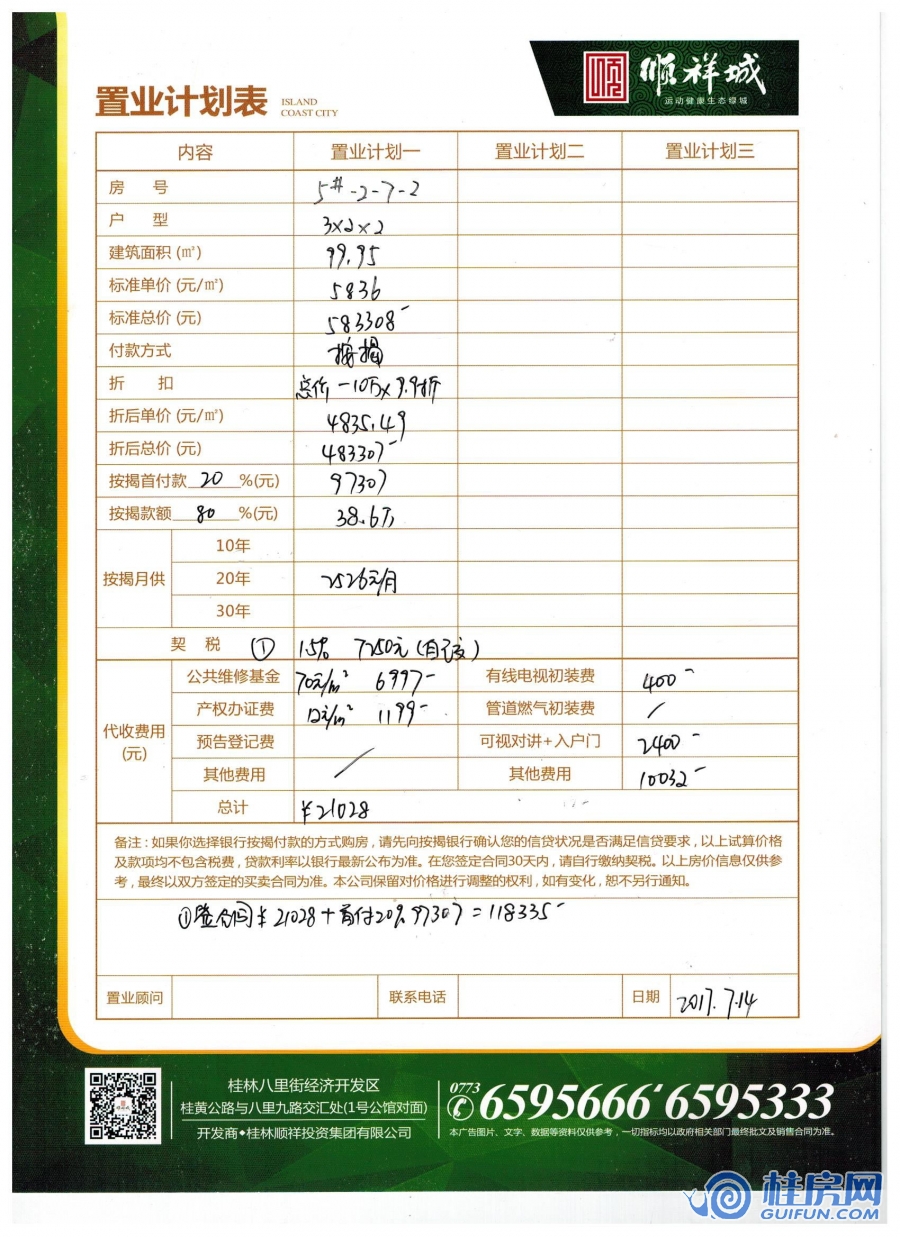 顺祥城
运动健康生态绿城
置业计划表 ISLAND COAST CITY
内容 置业计划一 置业计划二 置业计划三
房 号 5#-2-7-2
户 型 3×2×2
建筑面积 (㎡) 99.95
标准单价 (元/㎡) 5836
标准总价 (元) 583308-
付款方式 按揭
折 扣 总价-10万×9.9折
折后单价 (元/㎡) 4835.49
折后总价 (元) 483307-
按揭首付款 20 %(元) 97307
按揭款额 80 %(元) 38.6万
按揭月供
10年
20年 2526元/月
30年
契 税 ① 1.5% 7250元(自己交)
代收费用(元)
公共维修基金 70元/m² 6997- 有线电视初装费 400-
产权办证费 12元/m² 1199- 管道燃气初装费 /
预告登记费 可视对讲+入户门 2400-
其他费用 / 其他费用 10032-
总计 ¥21028
备注:如果你选择银行按揭付款的方式购房,请先向按揭银行确认您的信贷状况是否满足信贷要求,以上试算价格
及款项均不包含税费,贷款利率以银行最新公布为准。在您签定合同30天内,请自行缴纳契税。以上房价信息仅供参
考,最终以双方签定的买卖合同为准。本公司保留对价格进行调整的权利,如有变化,恕不另行通知。
①签合同¥21028+首付20% 97307=118335-
置业顾问 联系电话 日期 2017.7.14
桂林八里街经济开发区
桂黄公路与八里九路交汇处(1号公馆对面)
开发商◆桂林顺祥投资集团有限公司
0773 6595666 6595333
本广告图片、文字、数据等资料仅供参考,一切指标均以政府相关部门最终批文及销售合同为准。
桂房网
GUIFUN.COM